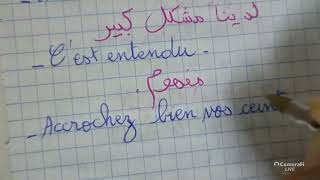 لدينا مشكل كبير
- C'est entendu.
مفهوم.
- Accrochez bien vos ceint
CameraFi
LIVE